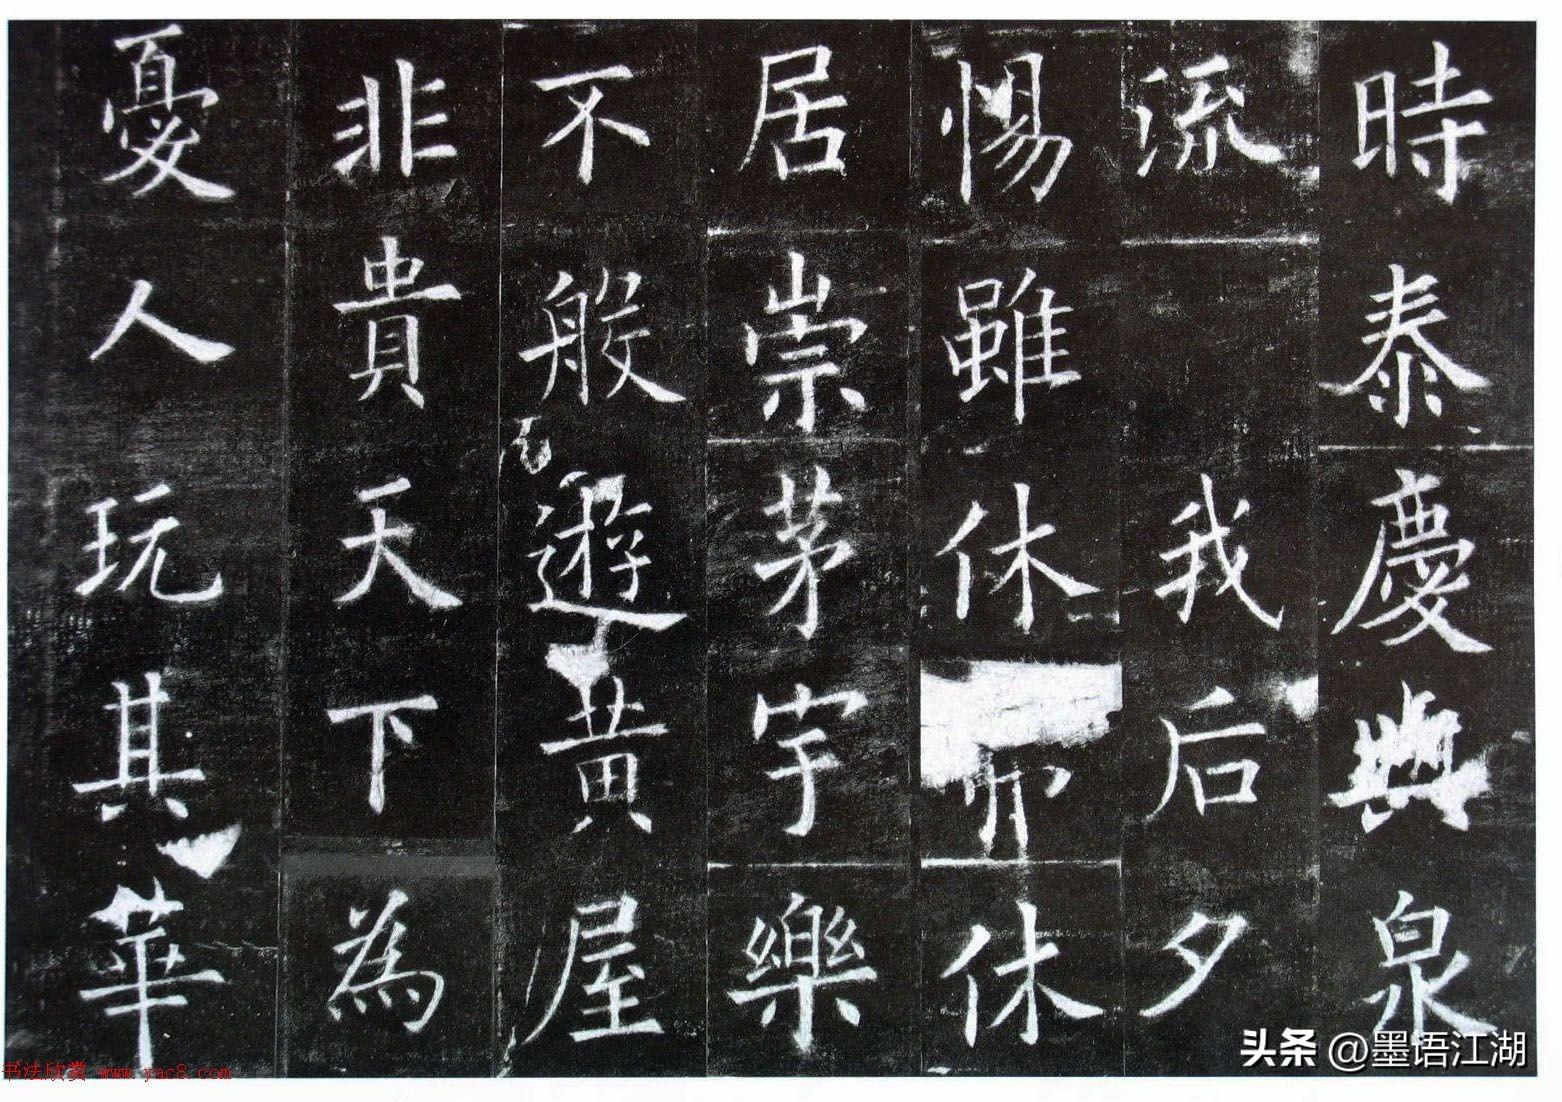 時泰慶與泉
流我后夕
惕雖休弗休
居崇茅宇樂
不般遊黃屋
非貴天下為
憂人玩其華
头条 @墨语江湖
书法欣赏 www.yac8.com